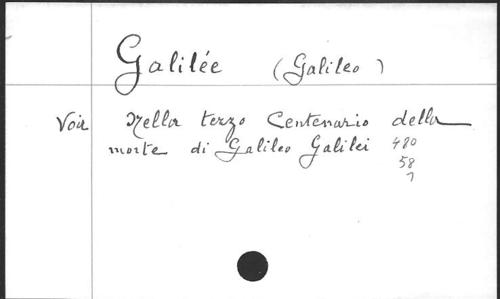 Galilée (Galileo)
Voir Nella terzo Centenario della
morte di Galileo Galilei 480
58
7